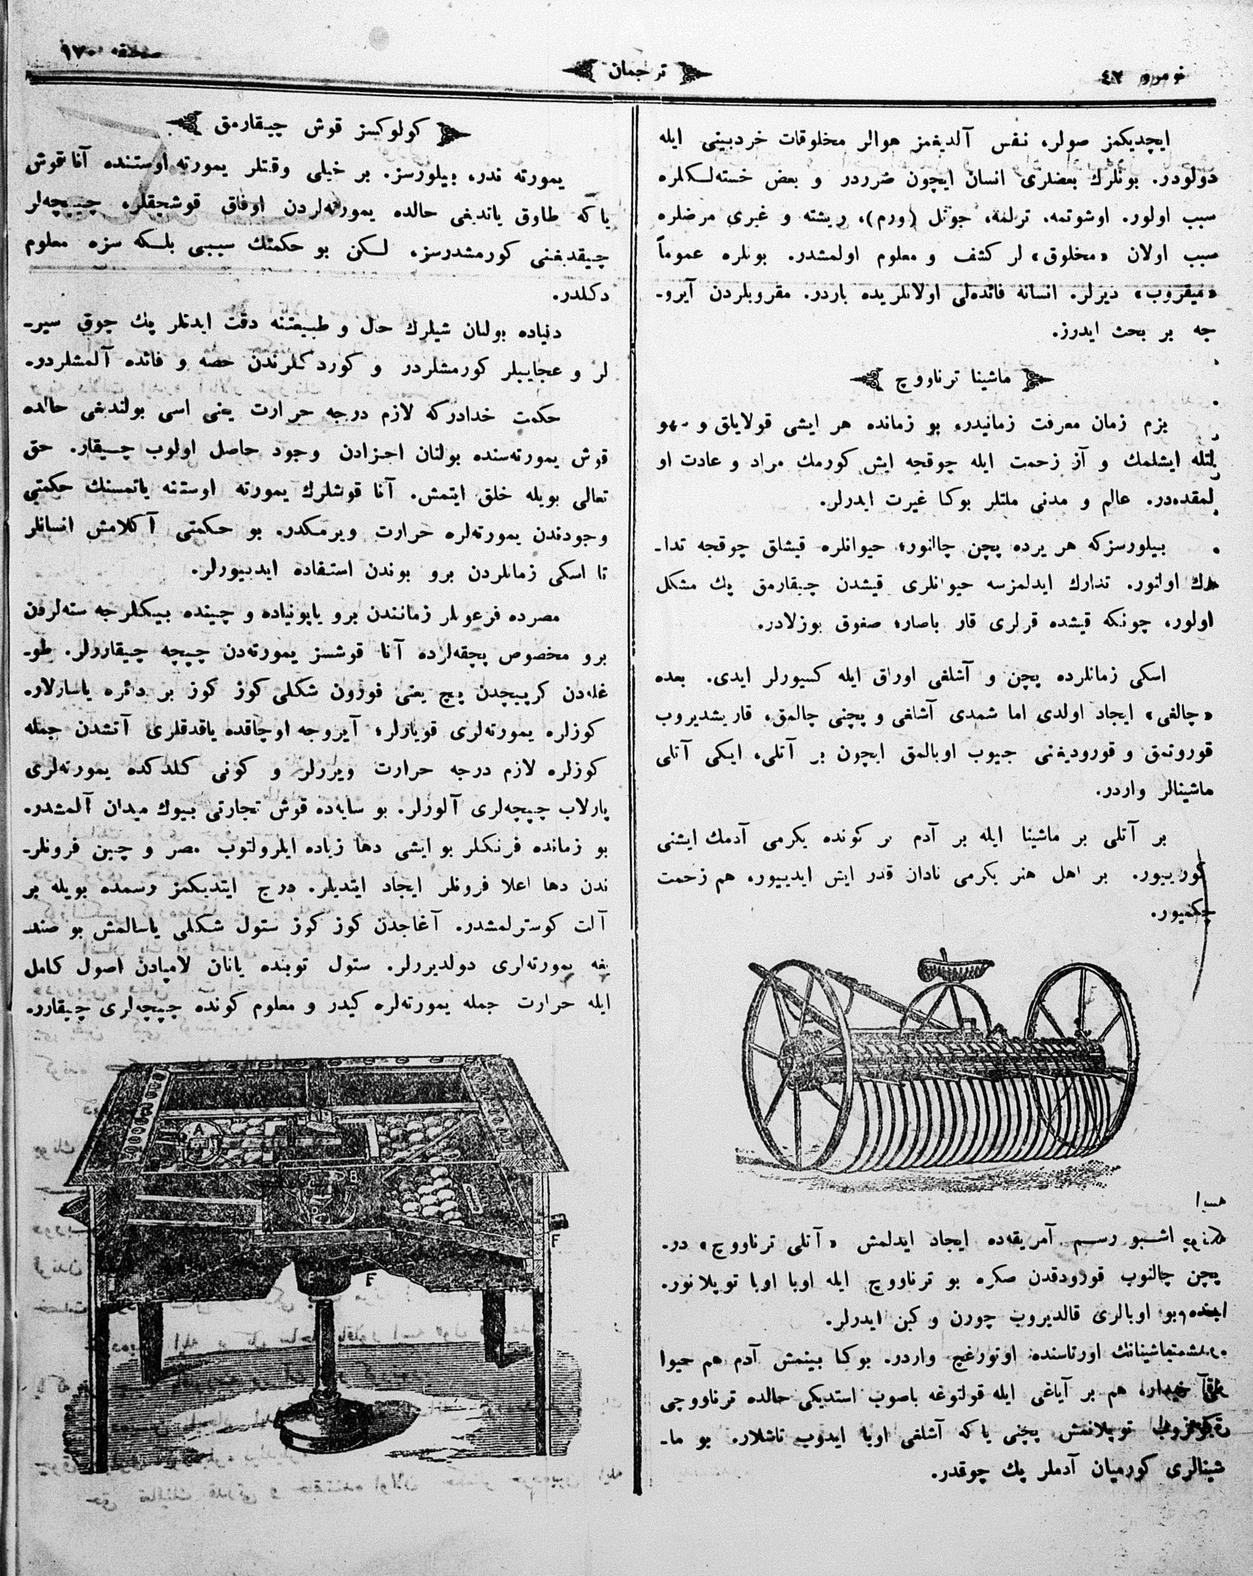 نومرو ٤٢
ترجمان
صحيفه ١٧٠
ایچدیكمز صولر، نفس آلدیغمز هوالر مخلوقات خردبینی ایله
دولودر. بونلرك بعضلری انسان ایچون ضرردر و بعض خسته‌لكلره
سبب اولور. اوشوتمه، ترلمه، جونل (ورم)، ریشته و غیری مرضلره
سبب اولان «مخلوق» لر كشف و معلوم اولمشدر. بونلره عموماً
«میقروب» دیرلر. انسانه فائده‌لی اولانلریده باردر. مقروبلردن آیرو-
جه بر بحث ایدرز.
ماشینا ترناووچ
بزم زمان معرفت زمانیدر، بو زمانده هر ایشی قولایلق و سهو
لتله ایشلمك و آز زحمت ایله چوقجه ایش كورمك مراد و عادت او
لمقده‌در. عالم و مدنی ملتلر بوكا غیرت ایدرلر.
بیلورسزكه هر یرده پچن چالنور؛ حیوانلره قیشلق چوقجه تدا-
رك اولنور. تدارك ایدلمزسه حیوانلری قیشدن چیقارمق پك مشكل
اولور، چونكه قیشده قرلری قار باصار؛ صغوق بوزلادر.
اسكی زمانلرده پچن و آشلغی اوراق ایله كسیورلر ایدی. بعده
«چالغی» ایجاد اولدی اما شمدی آشلغی و پچنی چالمق، قاریشدیروب
قوروتمق و قورودیغنی جیوب اوبالمق ایچون بر آتلی، ایكی آتلی
ماشینالر واردر.
بر آتلی بر ماشینا ایله بر آدم بر كونده یكرمی آدمك ایشنی
كوریپور. بر اهل هنر یكرمی نادان قدر ایش ایدیپور، هم زحمت
چكمیور.
اشبو رسم آمریقه‌ده ایجاد ایدلمش «آتلی ترناووچ» در.
پچن چالنوب قورودقدن صكره بو ترناووچ ایله اوبا اوبا توپلانور.
بو اوبالری قالدیروب چورن و كبن ایدرلر.
اورتاسنده اوتورغچ واردر. بوكا بینمش آدم هم حیوا
هم بر آیاغی ایله قولتوغه باصوب استدیكی حالده ترناووچی
توپلانمش پچنی یاكه آشلغی اوبا ایدوب تاشلار. بو ما-
شینالری كورمیان آدملر پك چوقدر.
كولوكسز قوش چیقارمق
یمورته ندر، بیلورسز. بر خیلی وقتلر یمورته اوستنده آنا قوش
یا كه طاوق یاتدیغی حالده یمورته‌لردن اوفاق قوشجقلر، چیپچه‌لر
چیقدیغنی كورمشدرسز، لكن بو حكمتك سببی بلكه سزه معلوم
دكلدر.
دنیاده بولنان شیلرك حال و طبیعتنه دقت ایدنلر پك چوق سیر-
لر و عجایبلر كورمشلردر و كوردكلرندن حصه و فائده آلمشلردر.
حكمت خدادركه لازم درجه حرارت یعنی اسی بولندیغی حالده
قوش یمورته‌سنده بولنان اجزادن وجود حاصل اولوب چیقار. حق
تعالی بویله خلق ایتمش. آنا قوشلرك یمورته اوستنه یاتمسنك حكمتی
وجودندن یمورته‌لره حرارت ویرمكدر. بو حكمتی آكلامش انسانلر
تا اسكی زمانلردن برو بوندن استفاده ایدیپورلر.
مصرده فرعونلر زمانندن برو یاپونیاده و چینده بیكلرجه سنه‌لردن
برو مخصوص پچقه‌لرده آنا قوشسز یمورته‌دن چیپچه چیقاررلر. طو-
غله‌دن كرپیچدن پچ یعنی فورون شكلی كوز كوز بر دائره یاسارلار.
كوزلره یمورته‌لری قویارلر؛ آیروجه اوچاقده یاقدقلری آتشدن جمله
كوزلره لازم درجه حرارت ویررلر و كونی كلدكده یمورته‌لری
یارلاب چیپچه‌لری آلورلر. بو سایه‌ده قوش تجارتی بیوك میدان آلمشدر.
بو زمانده فرنكلر بو ایشی دها زیاده ایلرولتوب مصر و چین فرونلر-
ندن دها اعلا فرونلر ایجاد ایتدیلر. درج ایتدیكمز رسمده بویله بر
آلت كوسترلمشدر. آغاجدن كوز كوز ستول شكلی یاسالمش بو صند
یغه یمورته‌لری دولدیررلر. ستول توبنده یانان لامپادن اصول كامل
ایله حرارت جمله یمورته‌لره كیدر و معلوم كونده چیپچه‌لری چیقارر.
A
B
F
E